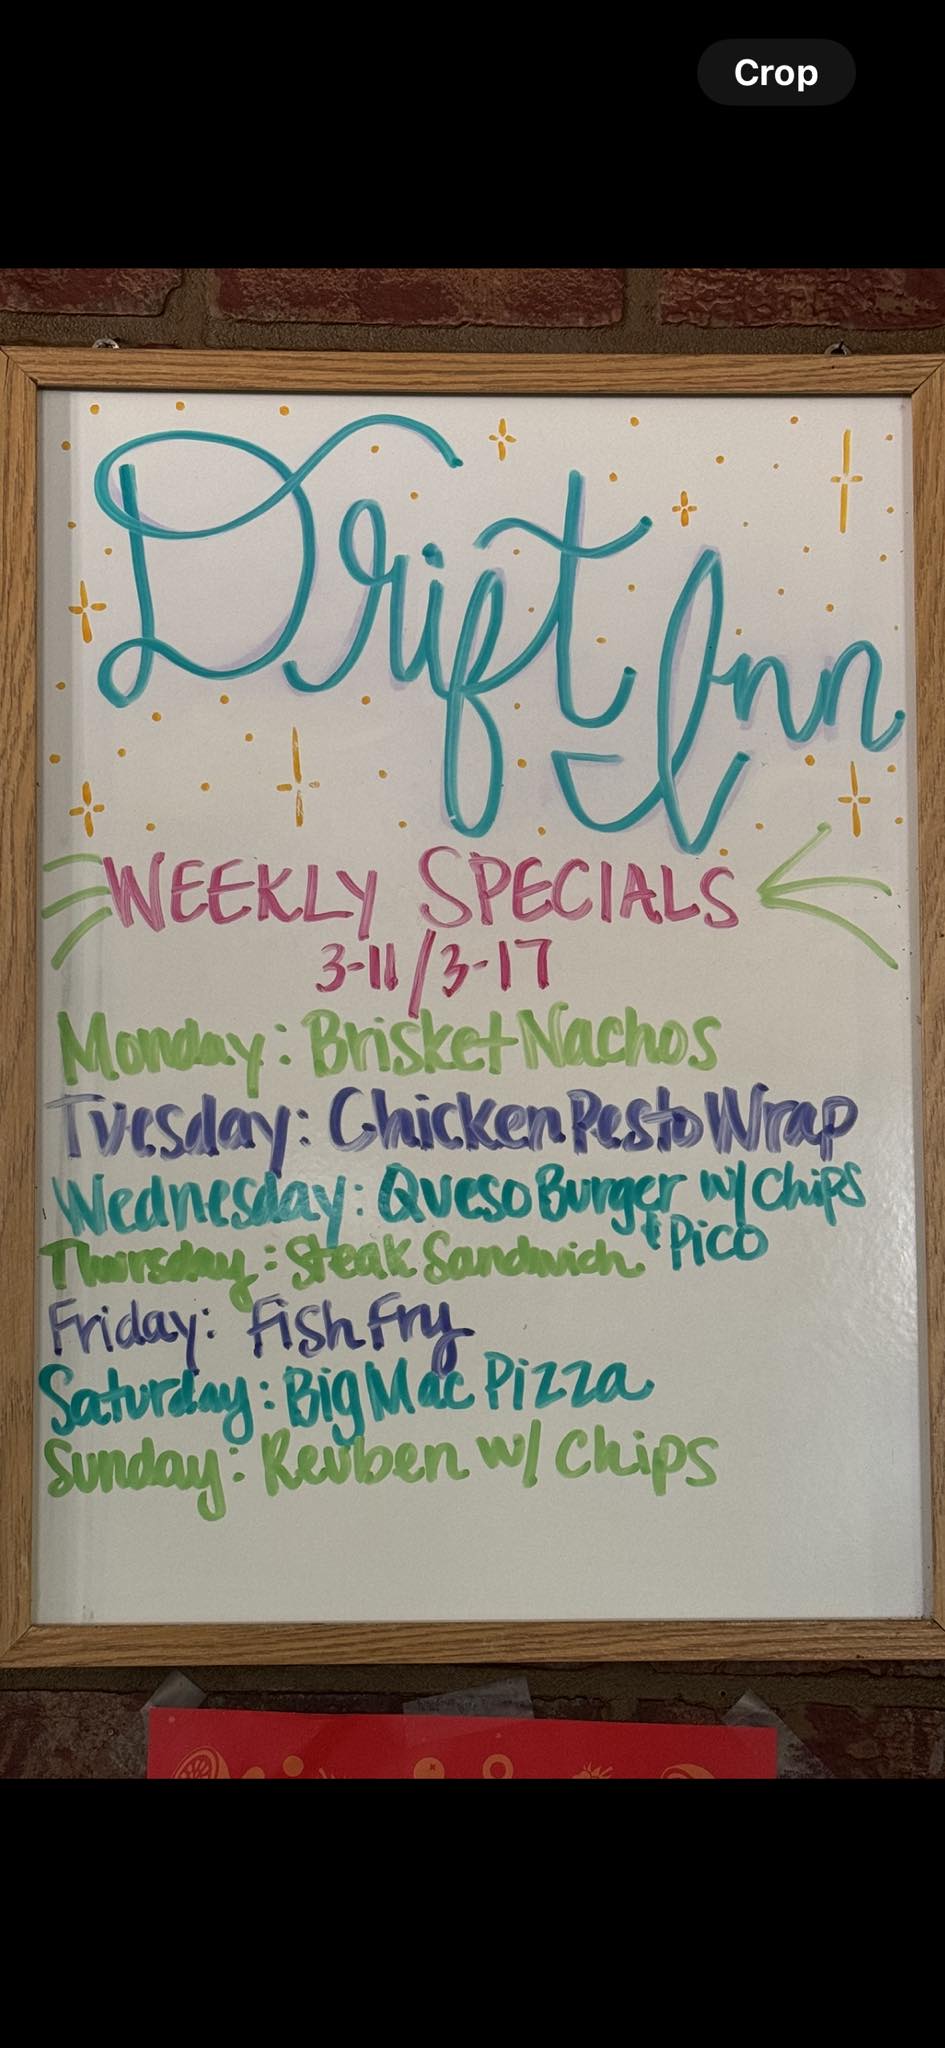 Crop
Drift Inn
WEEKLY SPECIALS
3-11/3-17
Monday: Brisket Nachos
Tuesday: Chicken Pesto Wrap
Wednesday: Queso Burger w/ Chips
& Pico
Thursday: Steak Sandwich
Friday: Fish Fry
Saturday: Big Mac Pizza
Sunday: Reuben w/ Chips